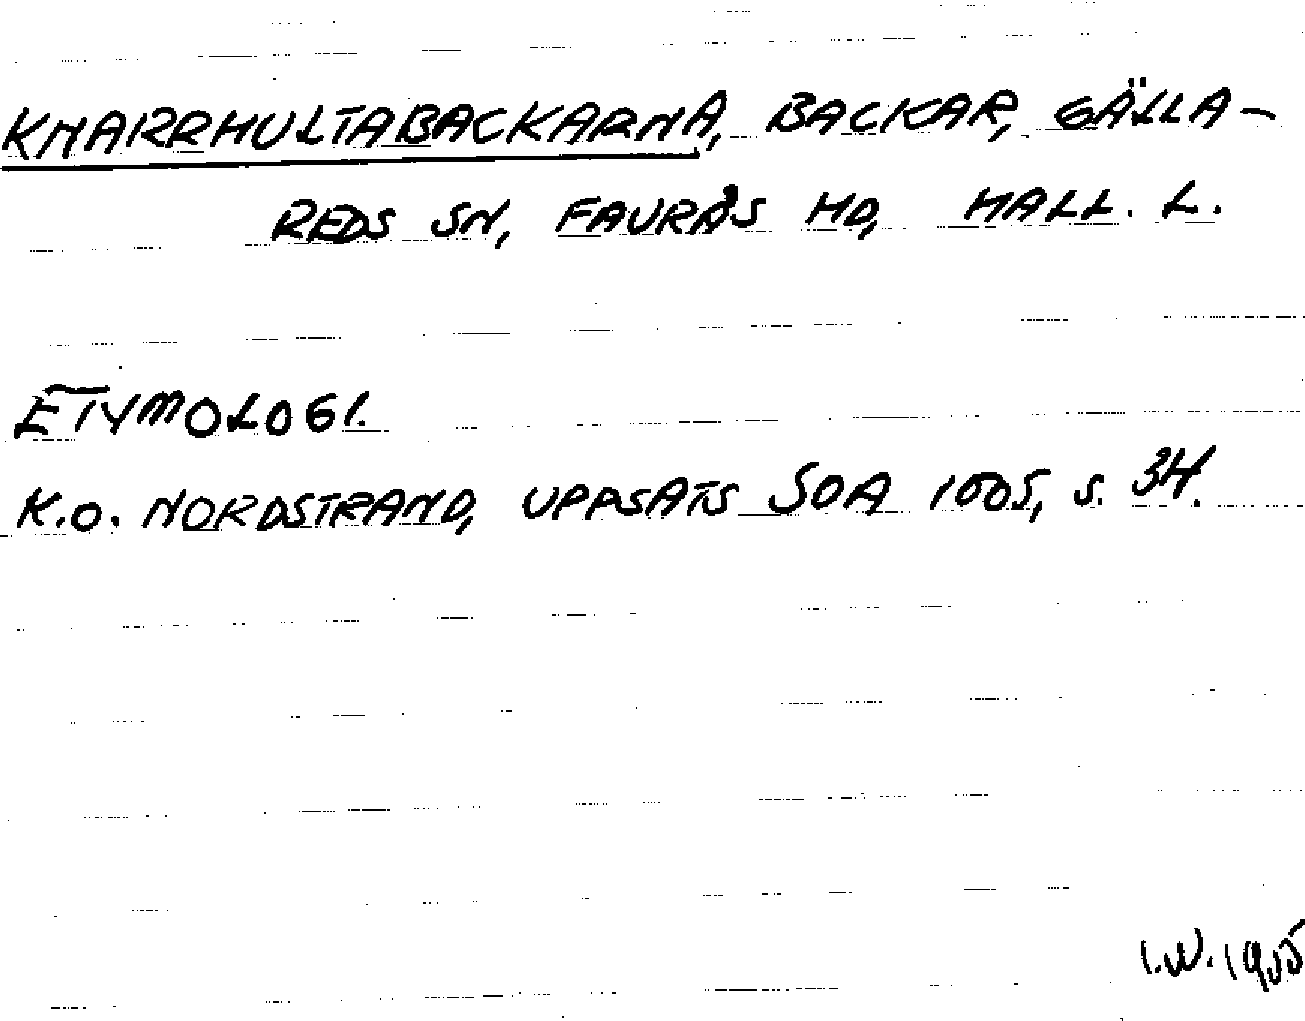 KNARRHULTABACKARNA, BACKAR, GÄLLA-
REDS SN, FAURÅS HD, HALL. L.
ETYMOLOGI.
K.O. NORDSTRAND, UPPSATS SOA 1005, S. 34.
I.W. 1955